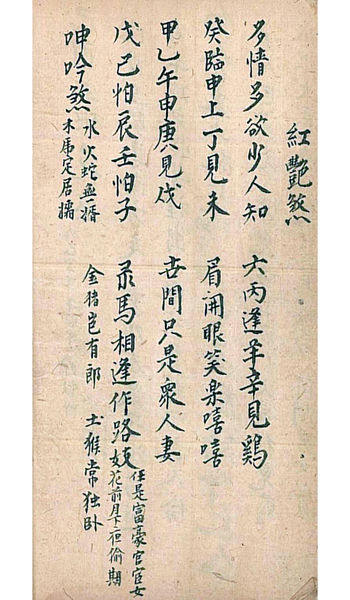 紅艷煞
多情多欲少人知 六丙逢羊辛見鷄
癸臨申上丁見未 眉開眼笑楽嘻嘻
甲乙午申庚見戌 世間只是衆人妻
戊己怕辰壬怕子 录馬相逢作路妓
任是富豪官宦女
花前月下夜偷期
呻吟煞
水火蛇無婿
木虎定居孀
金猪岂有郎 土猴常独卧